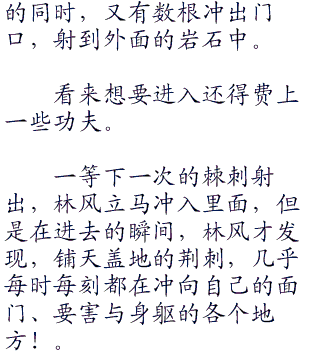 的同时，又有数根冲出门
口，射到外面的岩石中。
看来想要进入还得费上
一些功夫。
一等下一次的棘刺射
出，林风立马冲入里面，但
是在进去的瞬间，林风才发
现，铺天盖地的荆刺，几乎
每时每刻都在冲向自己的面
门、要害与身躯的各个地
方！。